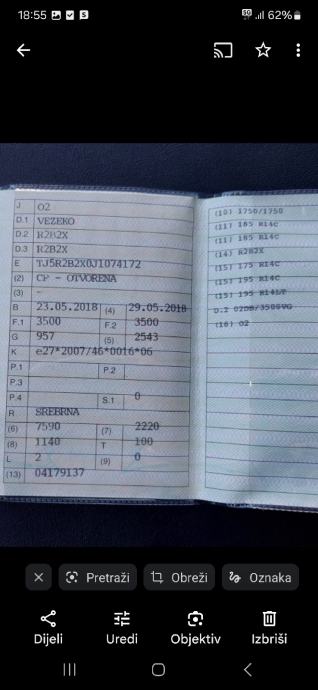 18:55
5G 62%
J O2
D.1 VEZEKO
D.2 R2B2X
D.3 R2B2X
E TJ5R2B2X0J1074172
(2) CP - OTVORENA
(3) -
B 23.05.2018 (4) 29.05.2018
F.1 3500 F.2 3500
G 957 (5) 2543
K e27*2007/46*0016*06
P.1 P.2
P.3
P.4 S.1 0
R SREBRNA
(6) 7590 (7) 2220
(8) 1140 T 100
L 2 (9) 0
(13) 04179137
(10) 1750/1750
(11) 185 R14C
(11) 185 R14C
(14) R2B2X
(15) 175 R14C
(15) 195 R14C
(15) 195 R14LT
(16) O2
Pretraži
Obreži
Oznaka
Dijeli
Uredi
Objektiv
Izbriši